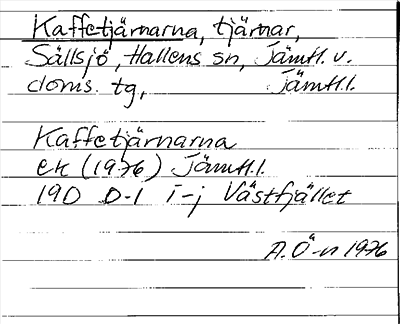 Kaffetjärnarna, tjärnar,
Sällsjö, Hallens sn, Jämtl. v.
doms. tg, Jämtl.l.
Kaffetjärnarna
ek (1976) Jämtl.l.
19D 0-1 i-j Västfjället
A.Ö-n 1976